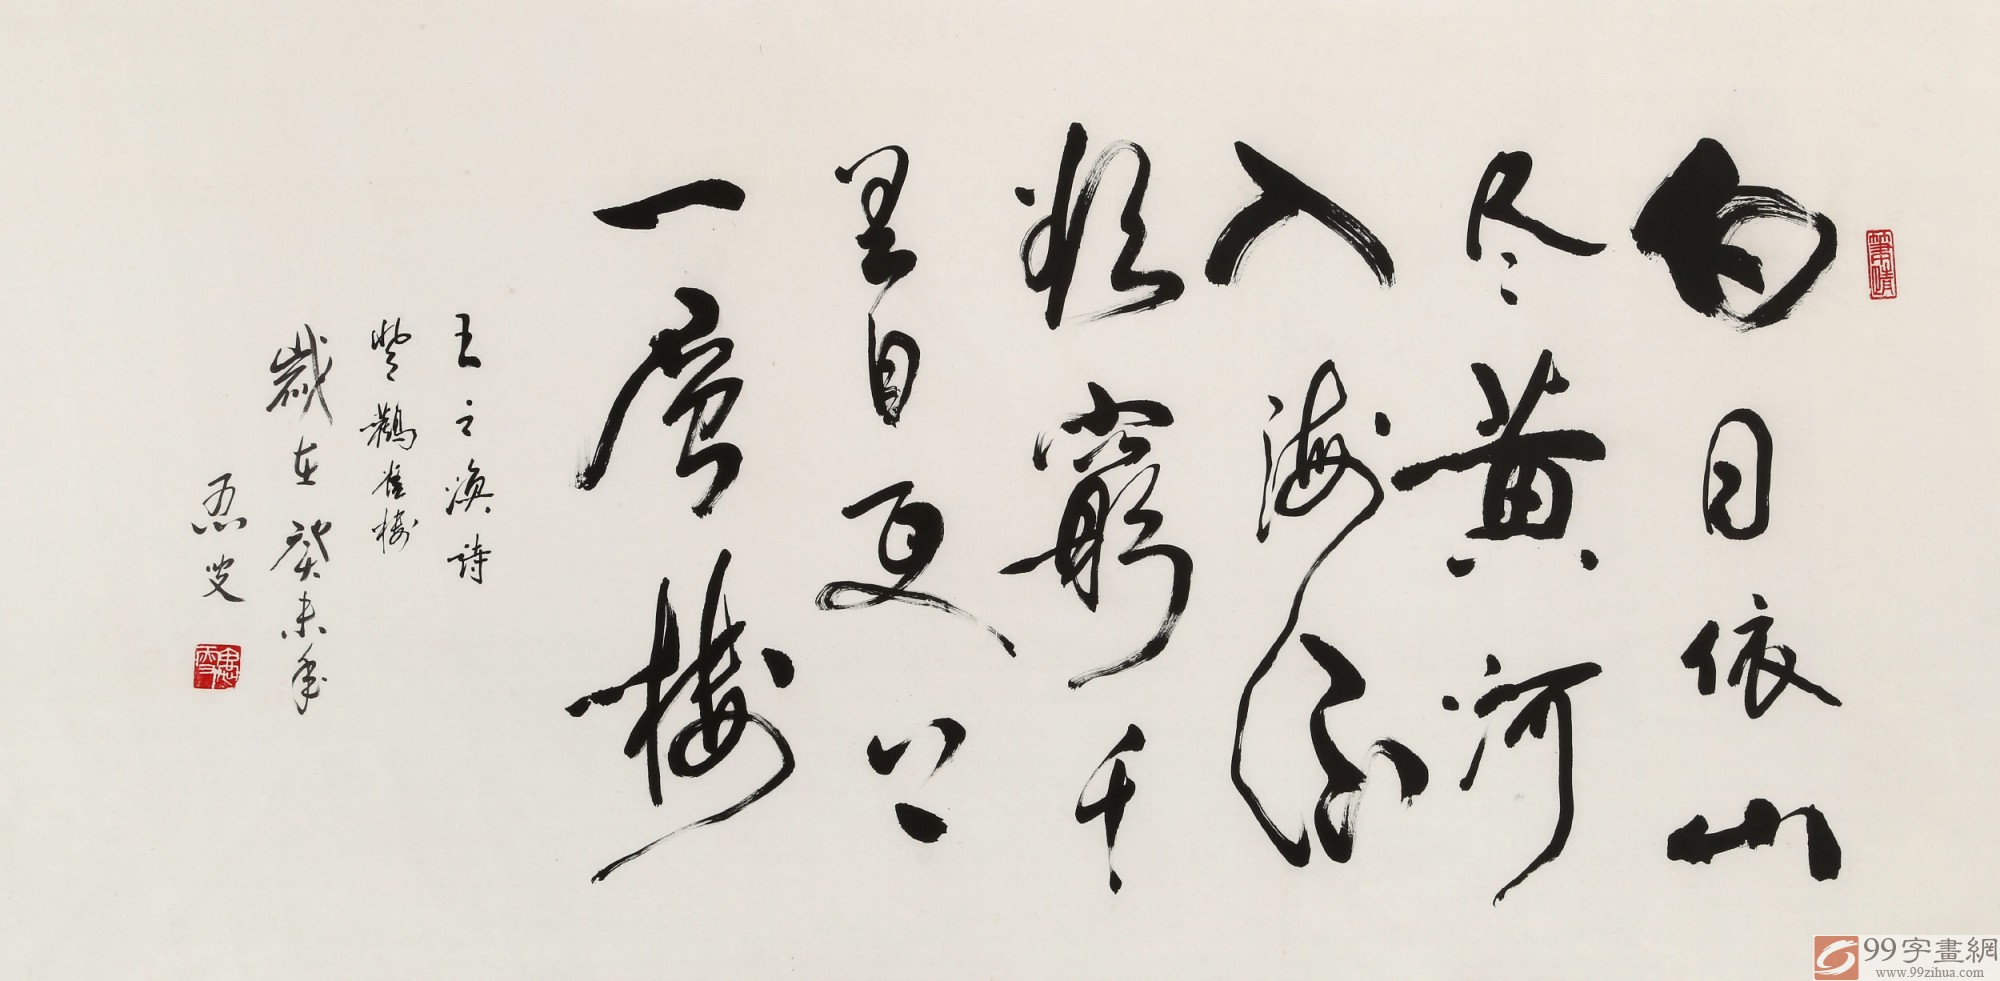 白日依山
尽黄河
入海流
欲穷千
里目更上
一层楼
王之涣诗
登鹳雀楼
岁在癸未年
忍叟
99字畫網
www.99zihua.com